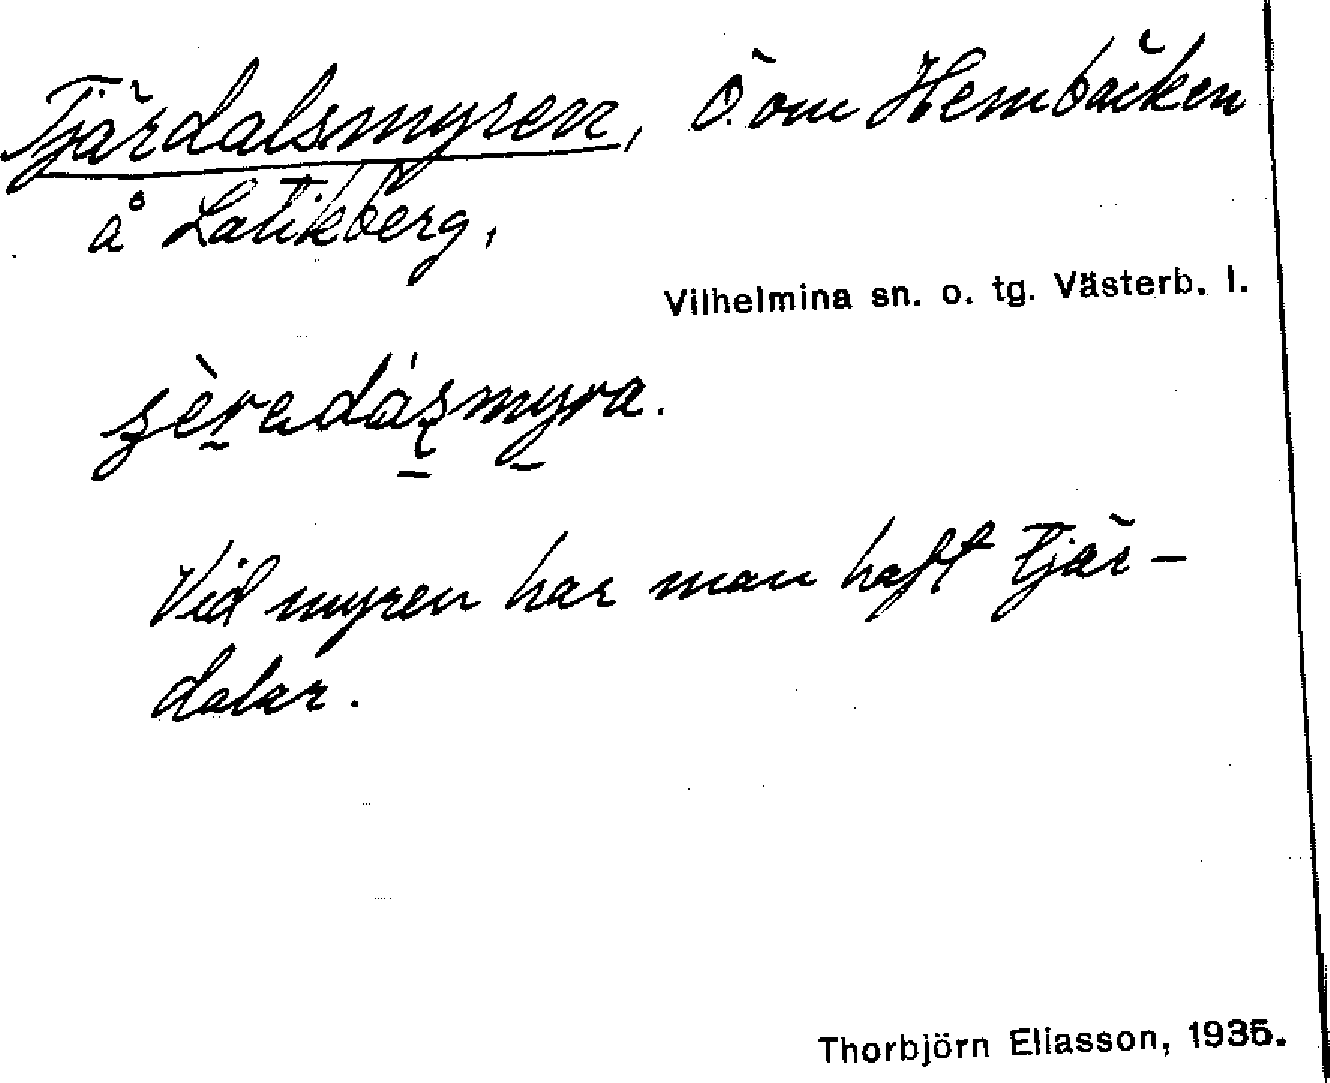 Tjärdalsmyren, Ö. om Hembäcken
å Latikberg,
Vilhelmina sn. o. tg. Västerb. l.
Vid myren har man haft tjär-
dalar.
Thorbjörn Eliasson, 1935.